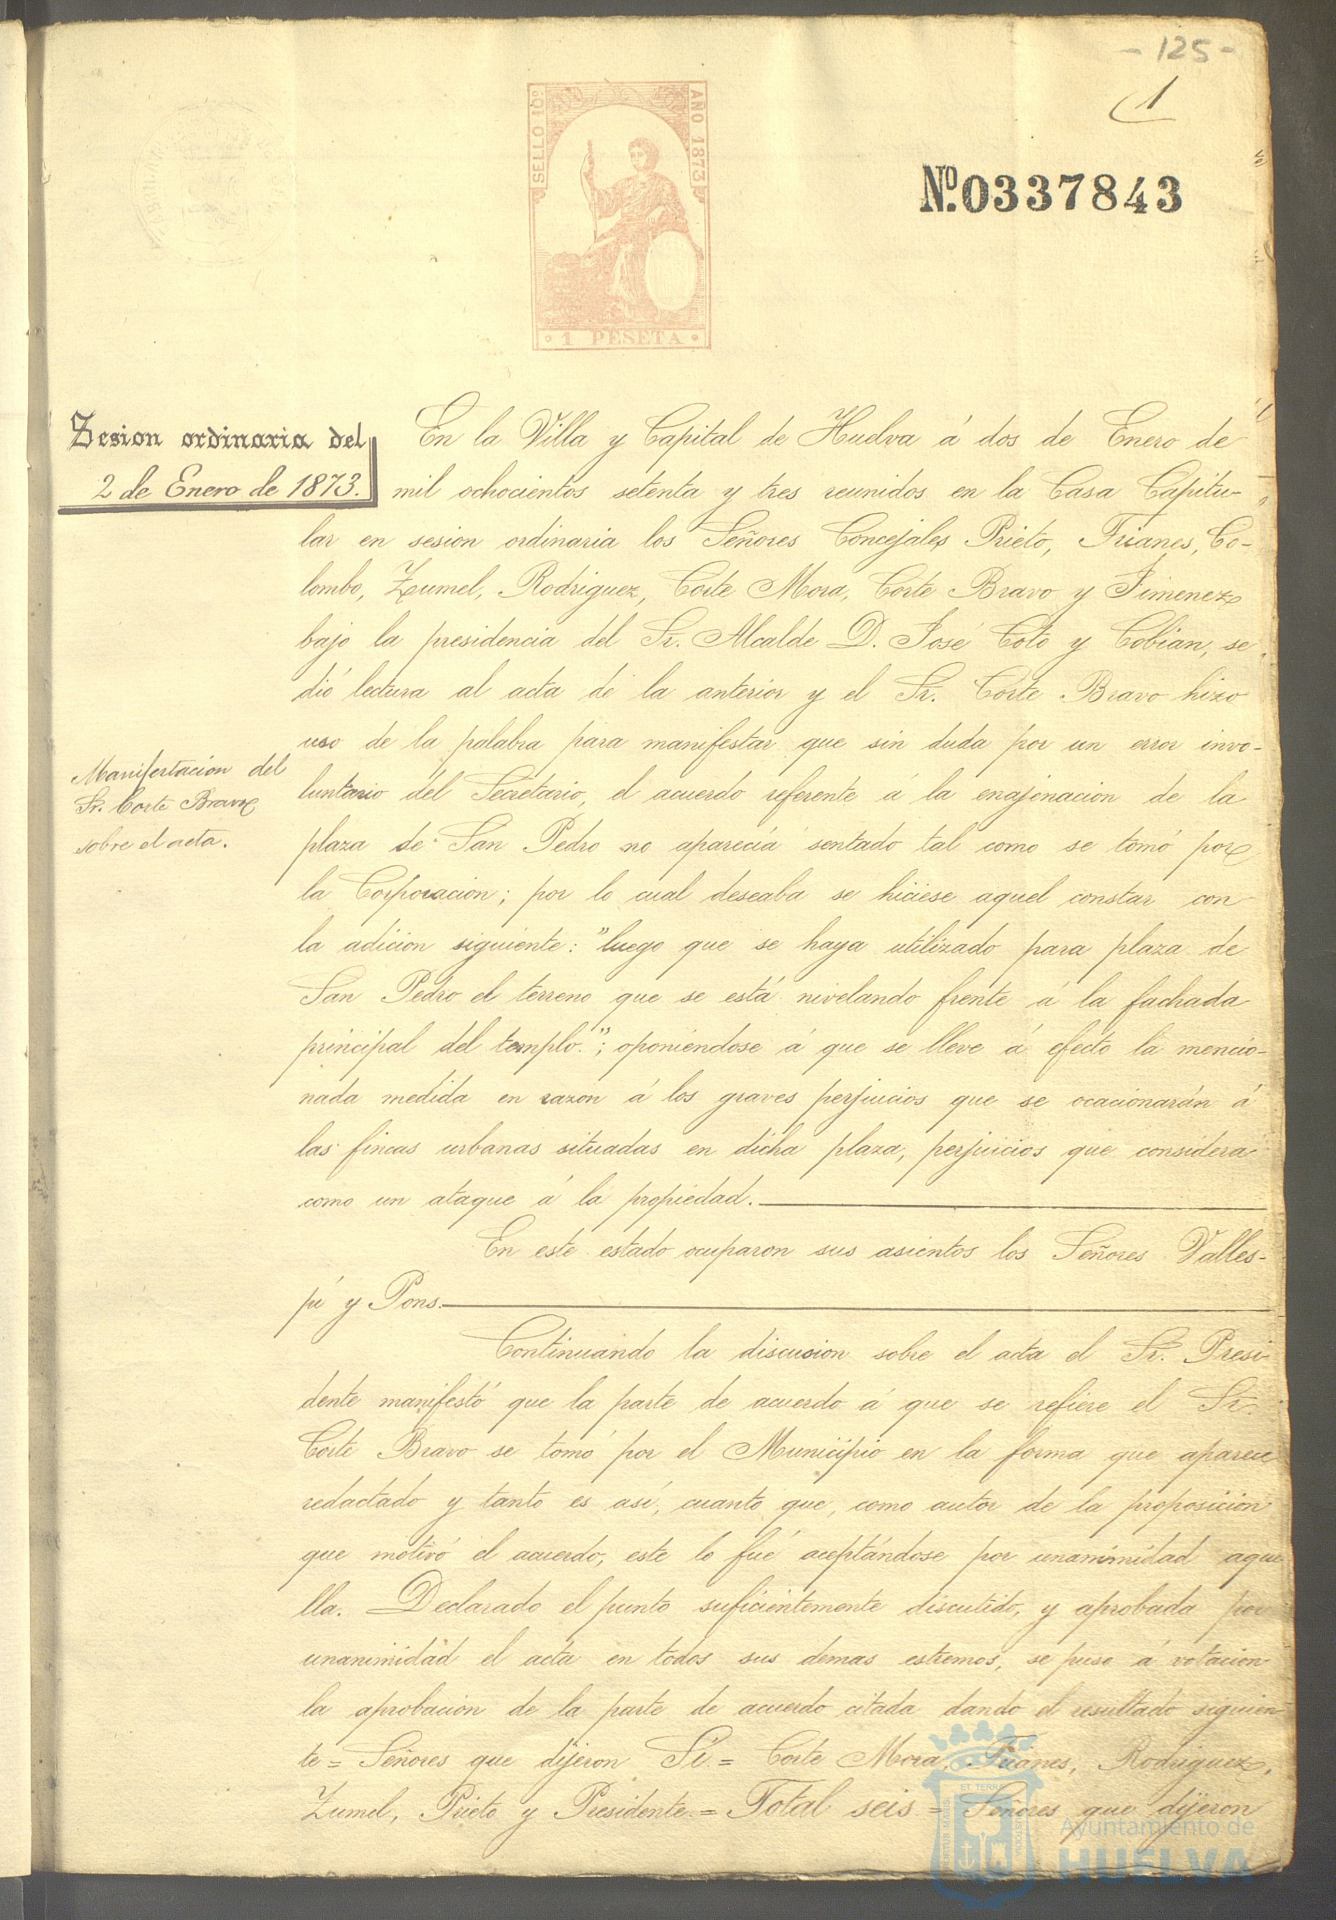 - 125 -
1
SELLO 10º
AÑO 1873
Nº. 0337843
1 PESETA
Sesion ordinaria del
2 de Enero de 1873.
En la Villa y Capital de Huelva á dos de Enero de
mil ochocientos setenta y tres reunidos en la Casa Capitu-
lar en sesion ordinaria los Señores Concejales Prieto, Trianes, Co-
lombo, Zumel, Rodriguez, Corte Mora, Corte Bravo y Jimenez
bajo la presidencia del Sr. Alcalde D. José Coto y Cobian, se
dió lectura al acta de la anterior y el Sr. Corte Bravo hizo
uso de la palabra para manifestar que sin duda por un error invo-
Manifestacion del
Sr. Corte Bravo
sobre el acta.
luntario del Secretario, el acuerdo referente á la enajenacion de la
plaza de San Pedro no aparecía sentado tal como se tomó por
la Corporacion; por lo cual deseaba se hiciese aquel constar con
la adicion siguiente: "luego que se haya utilizado para plaza de
San Pedro el terreno que se está nivelando frente á la fachada
principal del templo."; oponiéndose á que se lleve á efecto la mencio-
nada medida en razon á los graves perjuicios que se ocacionarán á
las fincas urbanas situadas en dicha plaza, perjuicios que considera
como un ataque á la propiedad.
En este estado ocuparon sus asientos los Señores Valles-
pí y Pons.
Continuando la discusion sobre el acta el Sr. Presi-
dente manifestó que la parte de acuerdo á que se refiere el Sr.
Corte Bravo se tomó por el Municipio en la forma que aparece
redactado y tanto es así, cuanto que, como autor de la proposicion
que motivó el acuerdo, este lo fué aceptándose por unanimidad aque
lla. Declarado el punto suficientemente discutido, y aprobada por
unanimidad el acta en todos sus demas estremos, se puso á votacion
la aprobacion de la parte de acuerdo citada dando el resultado siguien-
te = Señores que dijeron Si = Corte Mora, Trianes, Rodriguez,
Zumel, Prieto y Presidente = Total seis = Señores que dijeron
Ayuntamiento de
HUELVA